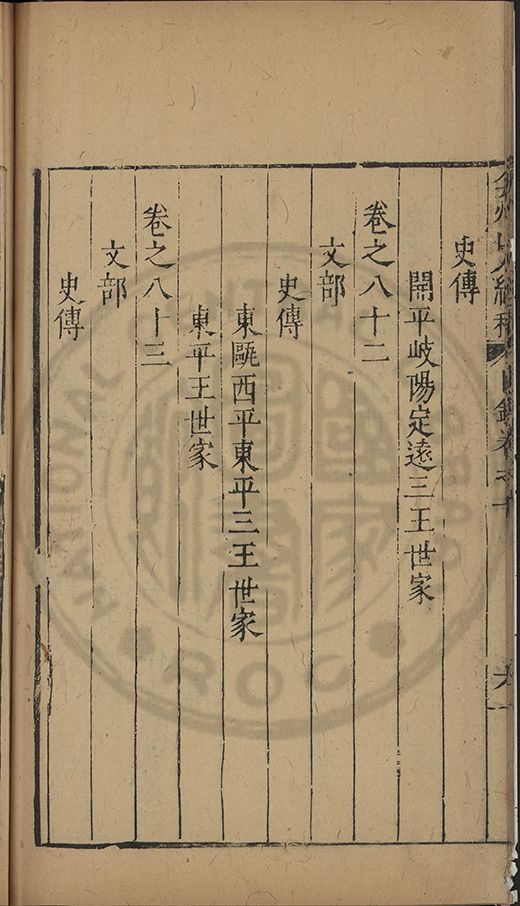 史傳
開平岐陽定遠三王世家
卷之八十二
文部
史傳
東甌西平東平三王世家
東平王世家
卷之八十三
文部
史傳